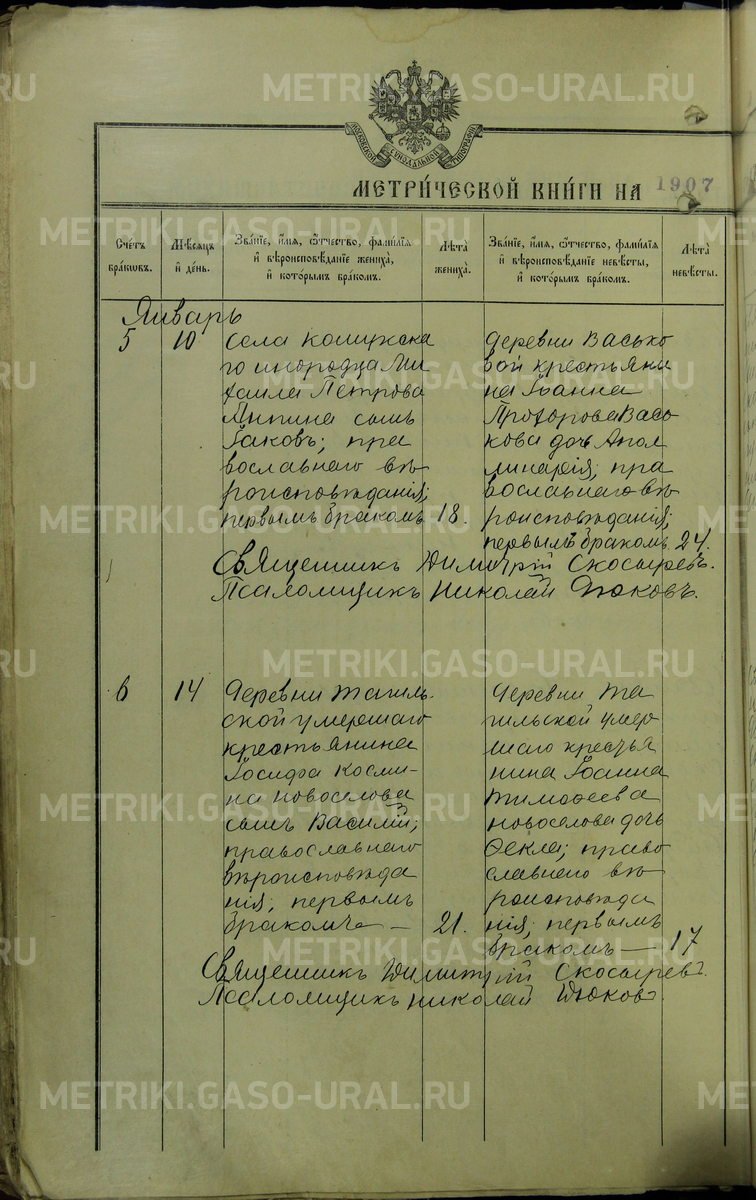 МОСКОВСКОЙ СѴНОДАЛЬНОЙ ТИПОГРАФІИ
МЕТРИ́ЧЕСКОЙ КНИ́ГИ НА 1907
Сче́тъ бра́кωвъ.
Мѣ́сяцъ и҆ де́нь.
Зва́нїе, и҆́мя, ѻ҆́тчество, фамі́лїя и҆ вѣроисповѣ́данїе жениха̀, и҆ кото́рымъ бра́комъ.
Лѣ́та жениха̀.
Зва́нїе, и҆́мя, ѻ҆́тчество, фамі́лїя и҆ вѣроисповѣ́данїе невѣ́сты, и҆ кото́рымъ бра́комъ.
Лѣ́та невѣ́сты.
Январь
5
10
села
го инородца Ми
хаила Петрова
Япина сынъ
Іаковъ; пра
вославнаго вѣ
роисповѣданія;
первымъ бракомъ
18.
деревни Васько
вой крестьяни
на Іоанна
Прохорова Вась
кова дочь Апол
линарія; пра
вославнаго вѣ
роисповѣданія;
первымъ бракомъ
24.
Священникъ Димитрій Скосыревъ.
Псаломщикъ Николай Дюковъ.
6
14
Деревни Тагиль
ской умершаго
крестьянина
Іосифа Косми-
на Новоселова
сынъ Василій;
православнаго
вѣроисповѣда
нія; первымъ
бракомъ —
21.
Деревни Та
гильской умер
шаго крестья
нина Іоанна
Тимофеева
Новоселова дочь
Фекла; право
славнаго вѣ
роисповѣда
нія; первымъ
бракомъ —
17
Священникъ Димитрій Скосыревъ.
Псаломщикъ Николай Дюковъ.
METRIKI.GASO-URAL.RU